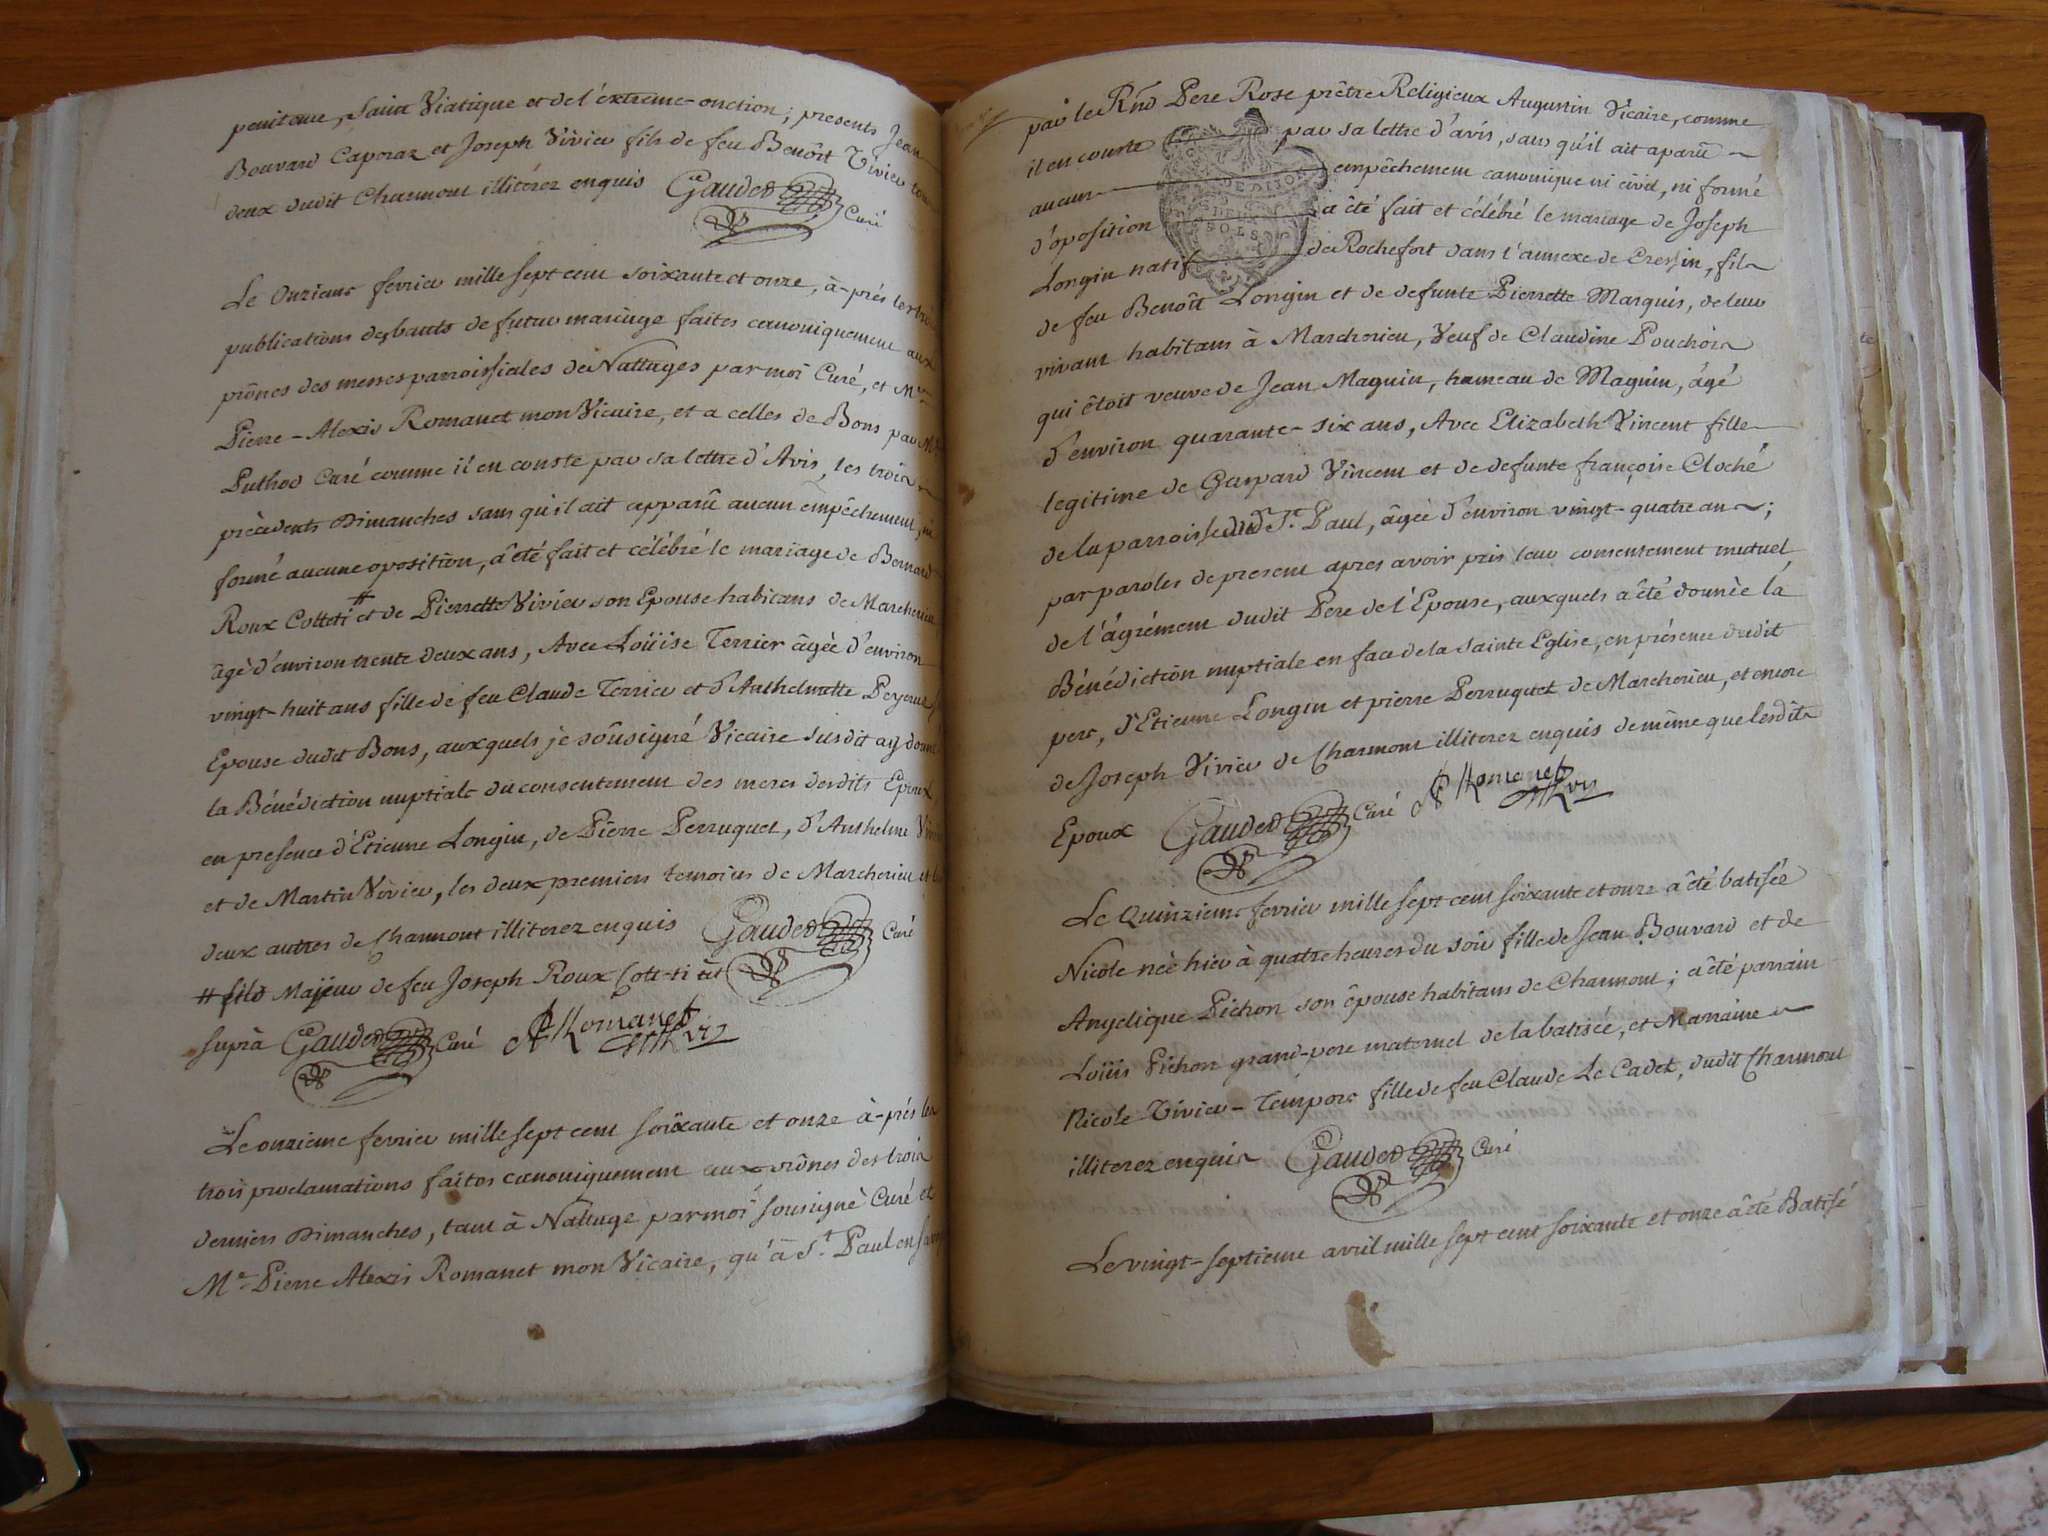 penitence, Saint Viatique et de l'éxtreme-onction; presents Jean
Bouvard Caporaz et Joseph Vivier fils de feu Benoît Vivier tous
deux dudit Charmont illitérez enquis Gauder Curé
Le Onzieme fevrier mille sept cent soixante et onze, à-prés les trois
publications des bants de futur mariage faites canoniquement aux
prônes des messes parroissiales de Nattages par moi Curé, et Mre
Pierre-Alexis Romanet mon Vicaire, et a celles de Bons par
Puthod Curé comme il en conste par sa lettre d'Avis, les trois
précedents Dimanches sans qu'il ait apparû aucun empêchement, ni
formé aucune oposition, a êté fait et célébré le mariage de Bernard
Roux Colteti # et de Pierrette Vivier son Epouse habitans de Marcherieu
âgé d'environ trente deux ans, Avec Loüise Terrier âgée d'environ
vingt-huit ans fille de feu Claude Terrier et d'Anthelmette Peysme
Epouse dudit Bons, auxquels je soûsigné Vicaire susdit ay donné
la Bénédiction nuptiale du consentement des meres desdits Epoux
en presence d'Etienne Longin, de Pierre Perruquet, d'Anthelme Vivier
et de Martin Vivier, les deux premiers temoins de Marcherieu et les
deux autres de Charmont illiterez enquis Gauder Curé
# fils Majeur de feu Joseph Roux Colt-ti ut
suprà Gauder Curé PA Romanet vre
Le onzieme fevrier mille sept cent soixante et onze à-prés les
trois proclamations faites canoniquement aux prônes des trois
derniers Dimanches, tant à Nattage par moi sousigné Curé et
Me Pierre Alexis Romanet mon Vicaire, qu'à St. Paul en
par le Rnd Pere Rose prêtre Religieux Augustin Vicaire, comme
il en conste par sa lettre d'avis, sans qu'il ait aparû
aucun empêchement canonique ni civil, ni formé
d'oposition a êté fait et célébré le mariage de Joseph
Longin natif de Rochefort dans l'annexe de Cressin, fils
de feu Benoît Longin et de defunte Pierrette Marquis, de leur
vivant habitans à Marcherieu, Veuf de Claudine Pouchoin
qui êtoit veuve de Jean Maguin, hameau de Maguin, âgé
d'environ quarante-six ans, Avec Elizabeth Vincent fille
legitime de Gaspard Vincent et de defunte françoise Cloché
de la parroisse dud. St. Paul, âgée d'environ vingt-quatre ans;
par paroles de present apres avoir pris leur consentement mutuel
de l'âgrément dudit Pere de l'Epouse, auxquels a êté donnée la
Bénédiction nuptiale en face de la sainte Eglise, en présence dudit
pere, d'Etienne Longin et pierre Perruquet de Marcherieu, et encore
de Joseph Vivier de Charmont illiterez enquis de même que lesdits
Epoux Gauder Curé PA Romanet vre
Le Quinzieme fevrier mille sept cent soixante et onze a êté batisée
Nicole née hier à quatre heures du soir fille de Jean Bouvard et de
Angelique Pichon son êpouse habitans de Charmont; a êté parrain
Loüis Pichon grand-pere maternel de la batisée, et Marraine
Nicole Vivier-Tempore fille de feu Claude Le Cadet, dudit Charmont
illiterez enquis Gauder Curé
Le vingt-septieme avril mille sept cent soixante et onze a êté Batisé